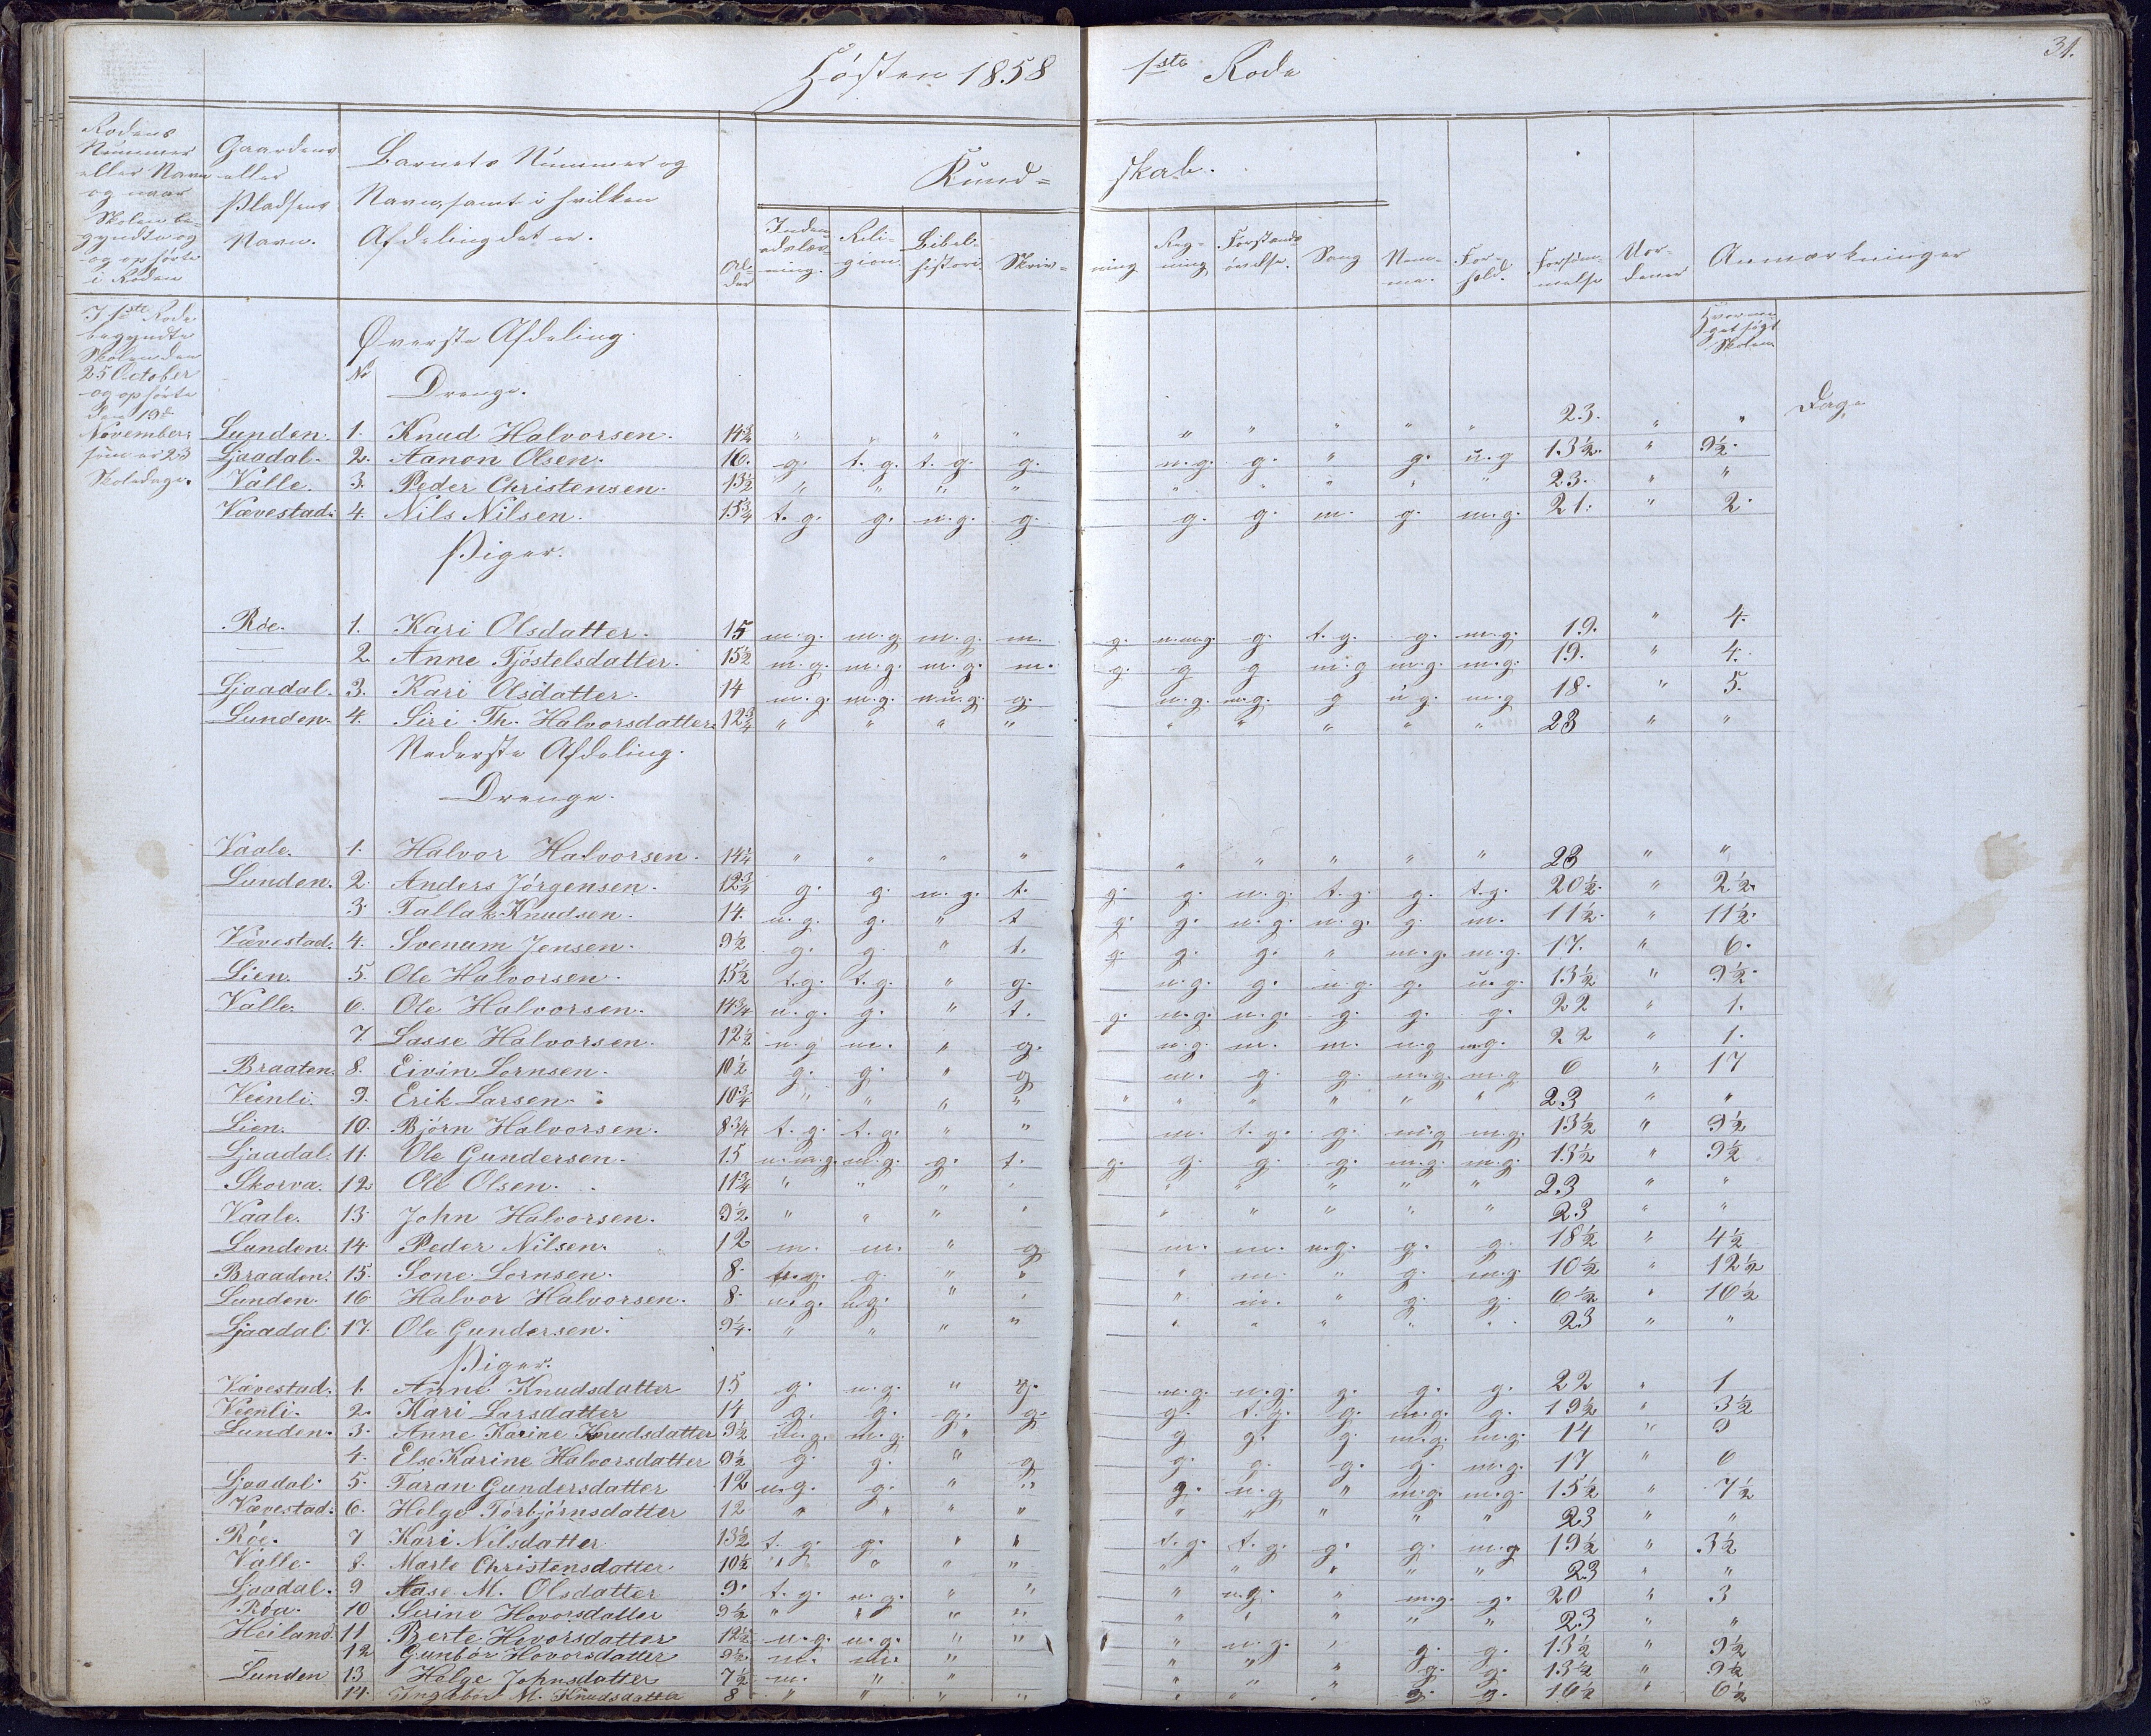 Høsten 1858 1ste Rode
31.
Rodens Nummer eller Navn og naar Skolen begyndte og ophørte i Roden
Gaardens eller Pladsens Navn.
Barnets Nummer og Navn, samt i hvilken Afdeling det er.
Alder
Kundskab.
Indenadslæsning. Religion. Bibelhistorie. Skrivning Regning Forstandsøvelse. Sang Nemme. Forhold. Forsømmelse Anmærkninger
Hvormeget søgt Skolen
I 1ste Rode begyndte Skolen den 25 October og ophørte den 19de November, som er 23 Skoledage.
Øverste Afdeling.
No Drenge.
Dage
Lunden. 1. Knud Halvorsen. 14¾ " " " " " " " " " 23. " "
Ljaadal. 2. Aanon Olsen. 16. g. t.g. t.g. g. m.g. g. " g. u.g 13½. " 9½.
Valle. 3. Peder Christensen. 13½ " " " " " " " " " 23. " "
Vævestad. 4. Nils Nilsen. 15¾ t.g. g. m.g. g. g. g. m. g. m.g. 21. " 2.
Piger.
Røe. 1. Kari Olsdatter. 15 m.g. m.g m.g. m. g. g. t.g. g. m.g. 19. " 4.
— 2. Anne Tjøstelsdatter. 15½ m.g. m.g. m.g. m. g. g g m.g m.g. m.g. 19. " 4.
Ljaadal. 3. Kari Olsdatter. 14 m.g. m.g. g. m.g. m.g. g u.g. m.g 18. " 5.
Lunden. 4. Siri Th. Halvorsdatter. 12¾ " " " " " " " " " 23 " "
Nederste Afdeling.
Drenge.
Vaale. 1. Halvor Halvorsen. 14¼ " " " " " " " " " 23 " "
Lunden. 2. Anders Jørgensen. 12¾ g. g. m.g. t. g. g. m.g. t.g. g. t.g. 20½. " 2½.
3. Tallak Knudsen. 14. m.g. g. " t g. g. m.g. m.g. g. m. 11½. " 11½.
Vævestad. 4. Svenum Jensen. 9½ g. g. " t. g. g. g. " m.g. m.g. 17. " 6.
Lien. 5. Ole Halvorsen. 15½ t.g. t.g. " g. m.g. g. m.g. g. u.g. 13½ " 9½.
Valle. 6. Ole Halvorsen. 14¾ m.g. g. " t. g. m.g. m.g. g. g. g. 22 " 1.
7. Lasse Halvorsen. 12½ m.g m. " g. m.g. m. m. m.g m.g. 22 " 1.
Braaten. 8. Eivin Lornsen. 10½ g. g. " g m. g. g. m.g. m.g 6 " 17
Veenli. 9. Erik Larsen. 10¾ " " " " " " " " " " 23 " "
Lien. 10. Bjørn Halvorsen. 8¾ t.g. t.g. " " m. t.g. g. m.g m.g. 13½ " 9½
Ljaadal. 11. Ole Gundersen. 15 m.g. g. t. g. g. g. g. m.g. m.g. 13½ " 9½
Skorva. 12 Ole Olsen. 11¾ " " " " " " " " " 23 " "
Vaale. 13. John Halvorsen. 9½ " " " " " " " " " 23 " "
Lunden. 14. Peder Nilsen. 12 m. m. " g m. m. m.g. g. g. 18½ " 4½
Braaden. 15. Sone Lornsen. 8. g. " " " m. " g. m.g. 10½ " 12½
Lunden. 16. Halvor Halvorsen. 8. m.g. m.g. " " " m. " g. g. 6½ " 16½
Ljaadal. 17. Ole Gundersen. 9¼. " " " " " " " " " 23 " "
Piger.
Vævestad. 1. Anne Knudsdatter 15 g. m.g. " g. m.g. m.g. g. g. g. 22 " 1
Veenli. 2. Kari Larsdatter 14 g. g. g. g. g. t.g. g. m.g. g. 19½ " 3½
Lunden. 3. Anne Karine Knudsdatter 9½ m.g. m.g. " g g g. g. m.g. m.g. 14 " 9
4. Else Karine Halvorsdatter 9½ g. g. " g g. g. g. g. m.g. 17 " 6
Ljaadal. 5. Taran Gundersdatter 12 m.g. g. " " g. m.g " m.g. m.g. 15½ " 7½
Vævestad. 6. Helge Torbjørnsdatter 12 " " " " " " " " " 23 " "
Røe. 7 Kari Nilsdatter 13½ t.g. g. " " t.g. t.g. g. g. m.g 19½ " 3½
Valle. 8. Marte Christensdatter 10½ " " " " " " " " " 23 " "
Ljaadal. 9 Aase M. Olsdatter 9. t.g. m.g. " " " m.g. " m.g. g. 20 " 3
Røa. 10 Serine Hovorsdatter 9½ " " " " " " " " " 23 " "
Heiland. 11 Berte Hovorsdatter 12½ m.g. m.g. " " " m.g. " g. g. 13½ " 9½
— 12 Gunbør Hovorsdatter 9½ m. m. " " " " g. g. 13½ " 9½
Lunden 13 Helge Johnsdatter 7½ m. " "
14. Ingebor M. Knudsdatter 8 " " " " " " " g. g. 16½ " 6½